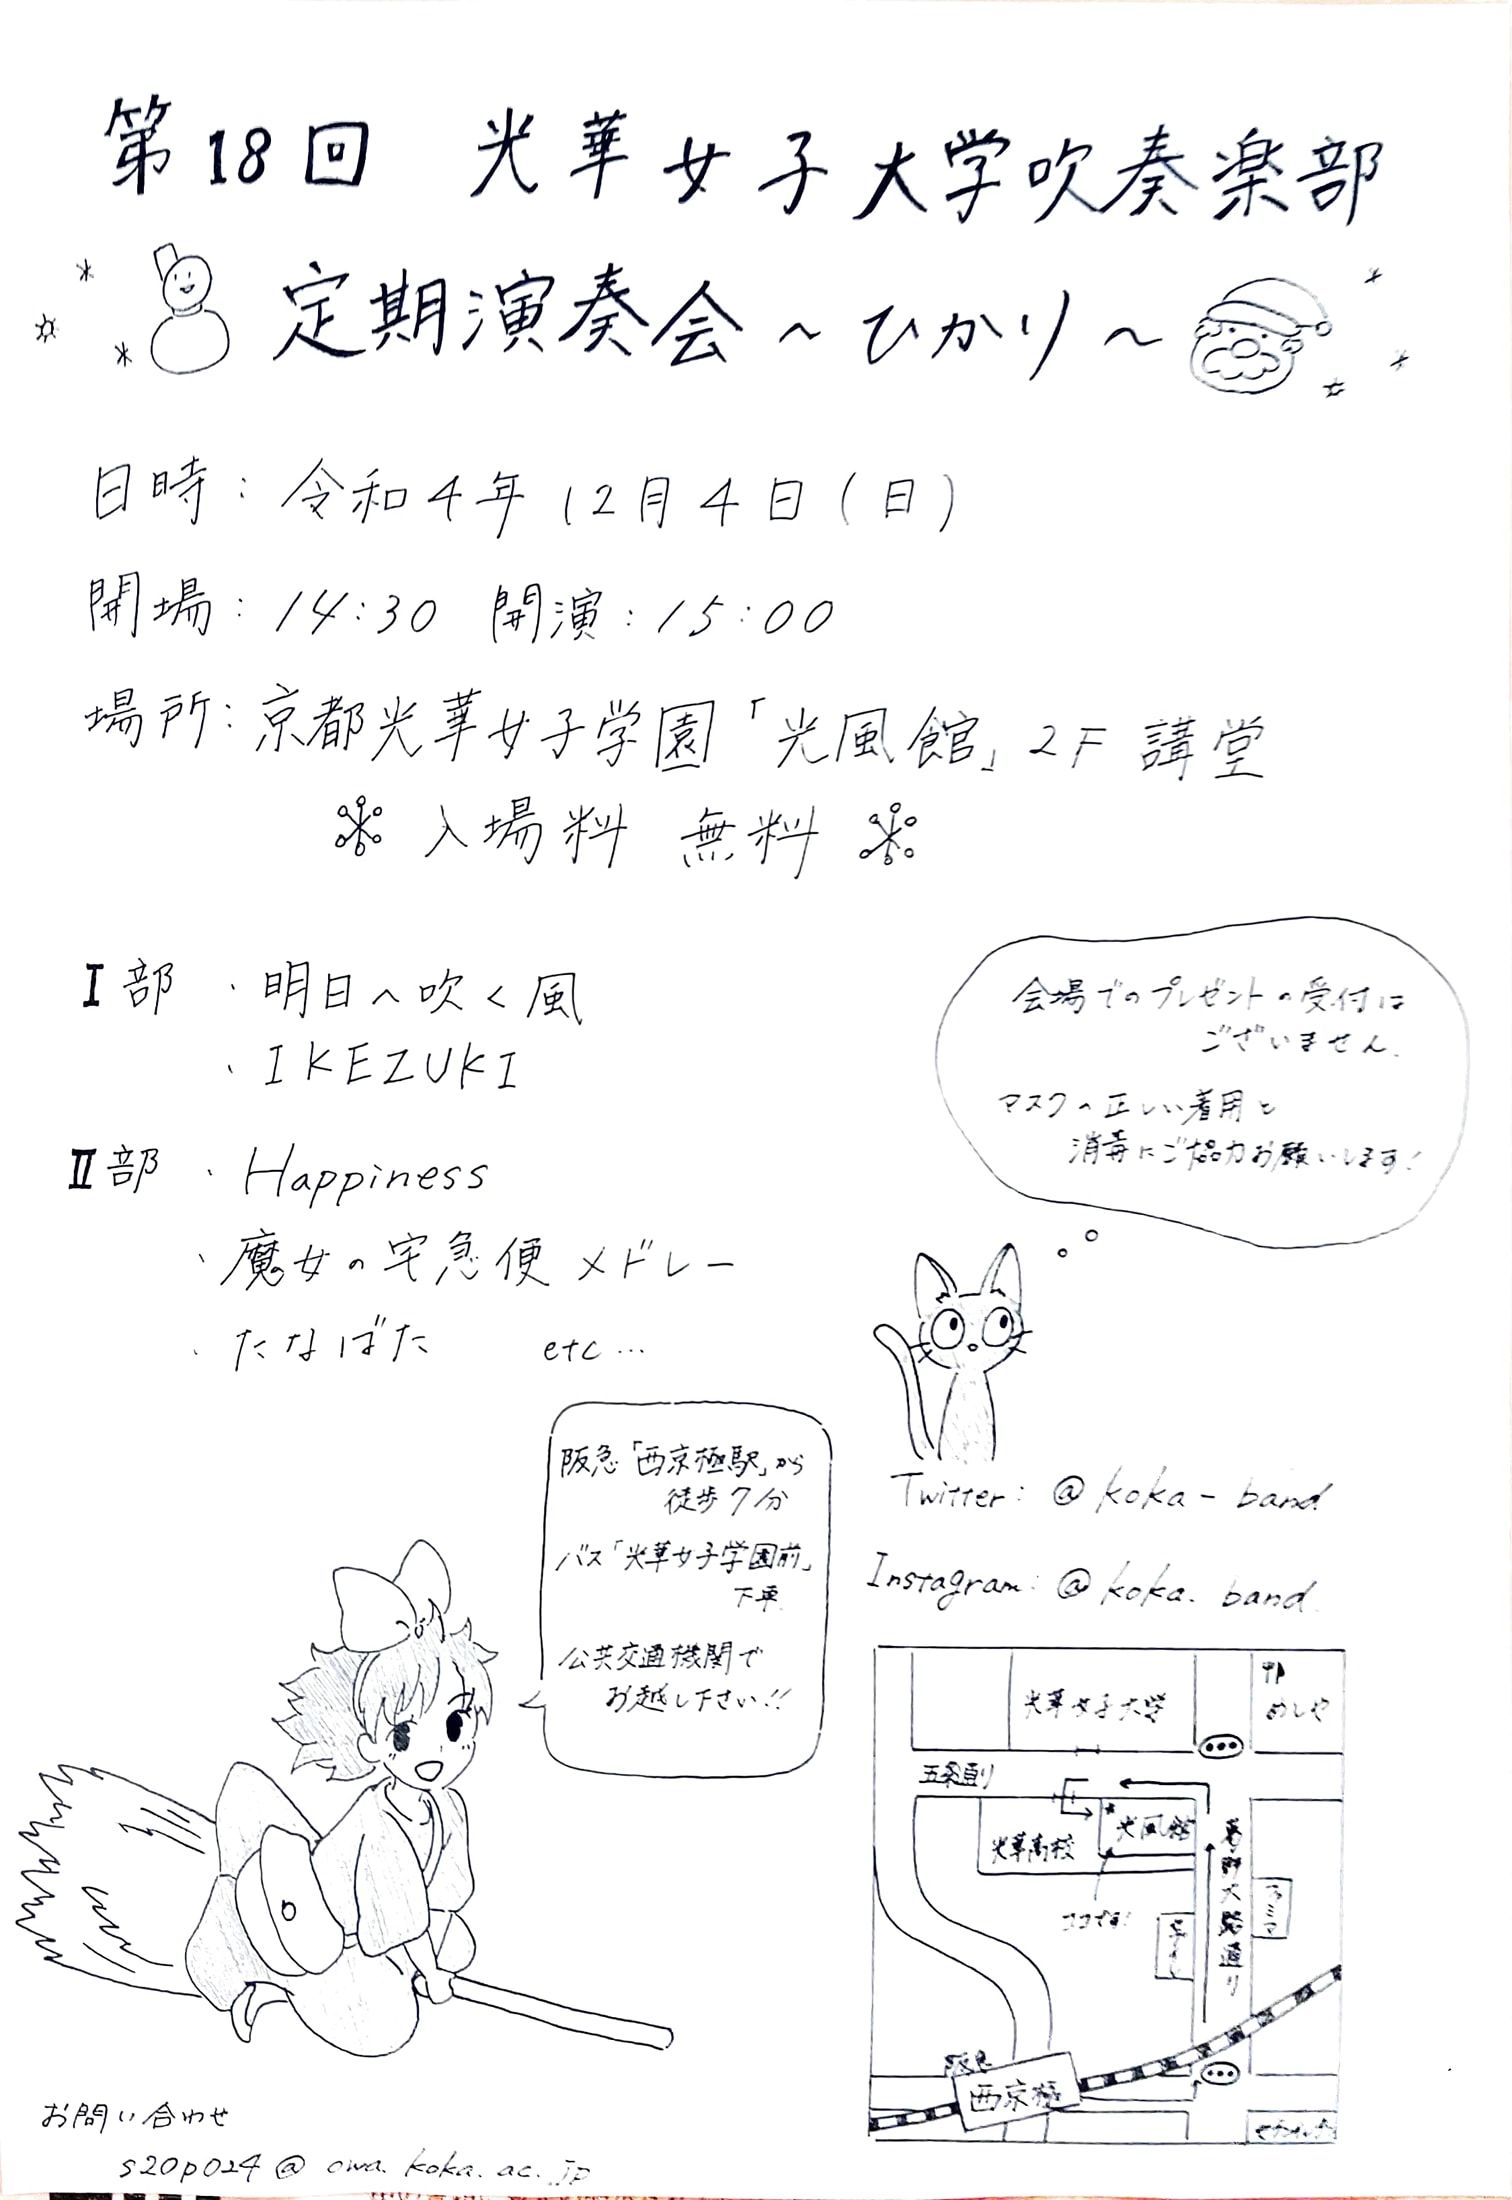 第18回 光華女子大学吹奏楽部
定期演奏会 ～ひかり～
日時：令和4年12月4日（日）
開場：14:30 開演：15:00
場所：京都光華女子学園「光風館」2F 講堂
入場料 無料
Ⅰ部 ・明日へ吹く風
・IKEZUKI
Ⅱ部 ・Happiness
・魔女の宅急便メドレー
・たなばた etc…
会場でのプレゼントの受付は
ございません。
マスクの正しい着用と
消毒にご協力お願いします！
阪急「西京極駅」から
徒歩7分
バス「光華女子学園前」
下車
公共交通機関で
お越し下さい!!
Twitter: @koka-band
Instagram: @koka.band.
めしや
光華女子大学
五条通り
光風館
光華高校
ココです！
葛野大路通り
ファミマ
阪急
西京極
お問い合わせ
s20p024@owa.koka.ac.jp